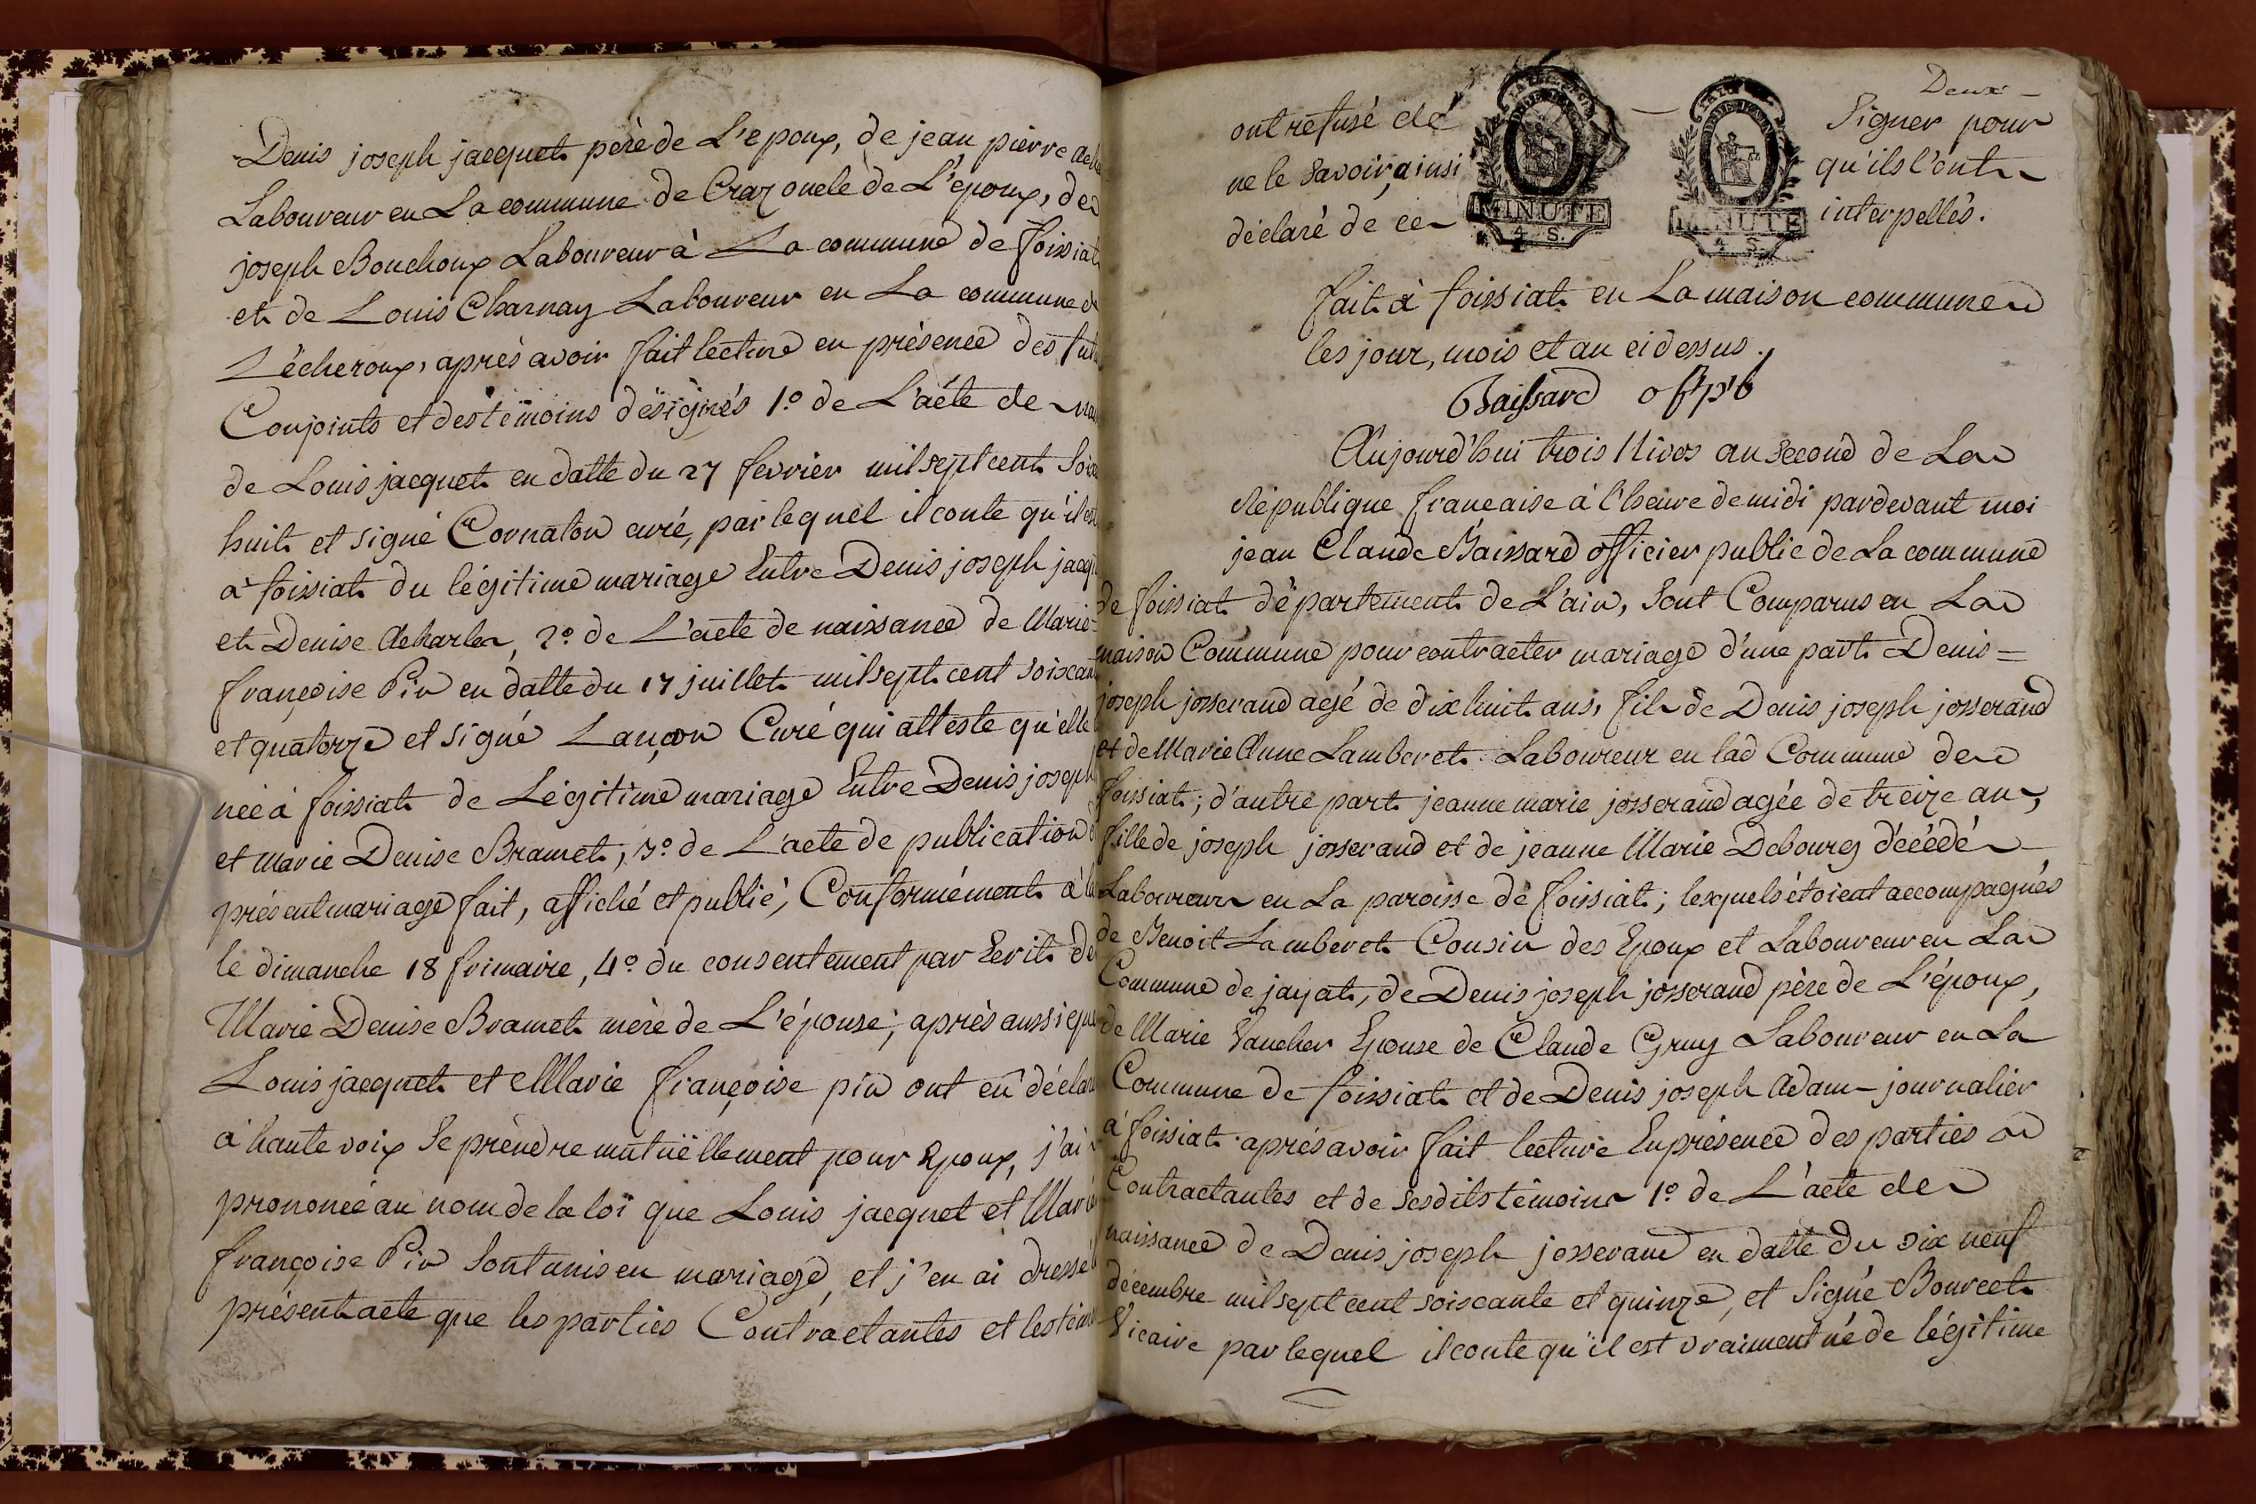 Denis joseph jacquet père de L'epoux, de jean pierre
Laboureur en La commune de Craz oncle de L'epoux, de
joseph Bouchoux Laboureur à La commune de foissiat
et de Louis Charnay Laboureur en La commune de
Lécheroux, après avoir fait lecture en présence des
Conjoints et des témoins désignés 1.o de L'acte de
de Louis jacquet en datte du 27 fevrier mil sept cent
huit et signé Cornaton curé, par lequel il conte qu'il est
à foissiat du légitime mariage Entre Denis joseph
et Denise Acharle, 2.o de L'acte de naissance de Marie
françoise Pin en datte du 17 juillet mil sept cent
et quatorze et signé Lançon Curé qui atteste qu'elle
née à foissiat de Légitime mariage Entre Denis joseph
et marie Denise Bramet, 3.o de L'acte de publication
présent mariage fait, affiché et publié, Conformément à la
le dimanche 18 frimaire, 4.o du consentement par Ecrit de
Marie Denise Bramet mère de L'épouse; après aussi que
Louis jacquet et Marie françoise pin ont eû
à haute voix Se prendre mutuëllement pour Epoux, j'ai
prononcé au nom de la loi que Louis jacquet et
françoise Pin Sont unis en mariage, et j'en ai dressé
présent acte que les parties Contractantes et les
Deux
ont refusé de Signer pour
ne le Savoir, ainsi qu'ils l'ont
déclaré de ce interpellés.
MINUTE
4. S.
MINUTE
4. S.
fait à foissiat en La maison commune
les jour, mois et an ci dessus.
Baissard off pb
Aujourd'hui trois Nivos an second de La
République francaise à l'heure de midi pardevant moi
jean Claude Baissard officier public de La commune
de foissiat département de L'ain, Sont Comparus en La
maison Commune pour contracter mariage d'une part Denis =
joseph josserand agé de dix huit ans, fils de Denis joseph josserand
et de Marie Anne Lamberet Laboureur en lad Commune de
foissiat; d'autre part jeanne marie josserand agée de treize ans,
fille de joseph josserand et de jeanne Marie Debourg décédés
Laboureurs en La paroisse de foissiat; lesquels étoient accompagnés
de Benoit Lamberet Cousin des Epoux et Laboureur en La
Commune de jayat, de Denis joseph josserand père de L'époux,
de Marie Vaucher Epouse de Claude Gruy Laboureur en La
Commune de foissiat et de Denis joseph Adam journalier
à foissiat après avoir fait lecture En présence des parties
Contractantes et de sesdits témoins 1.o de L'acte de
naissance de Denis joseph josserand en datte du dix neuf
décembre mil sept cent soiscante et quinze, et Signé Bourcet
Vicaire par lequel il conte qu'il est vraiment né de légitime